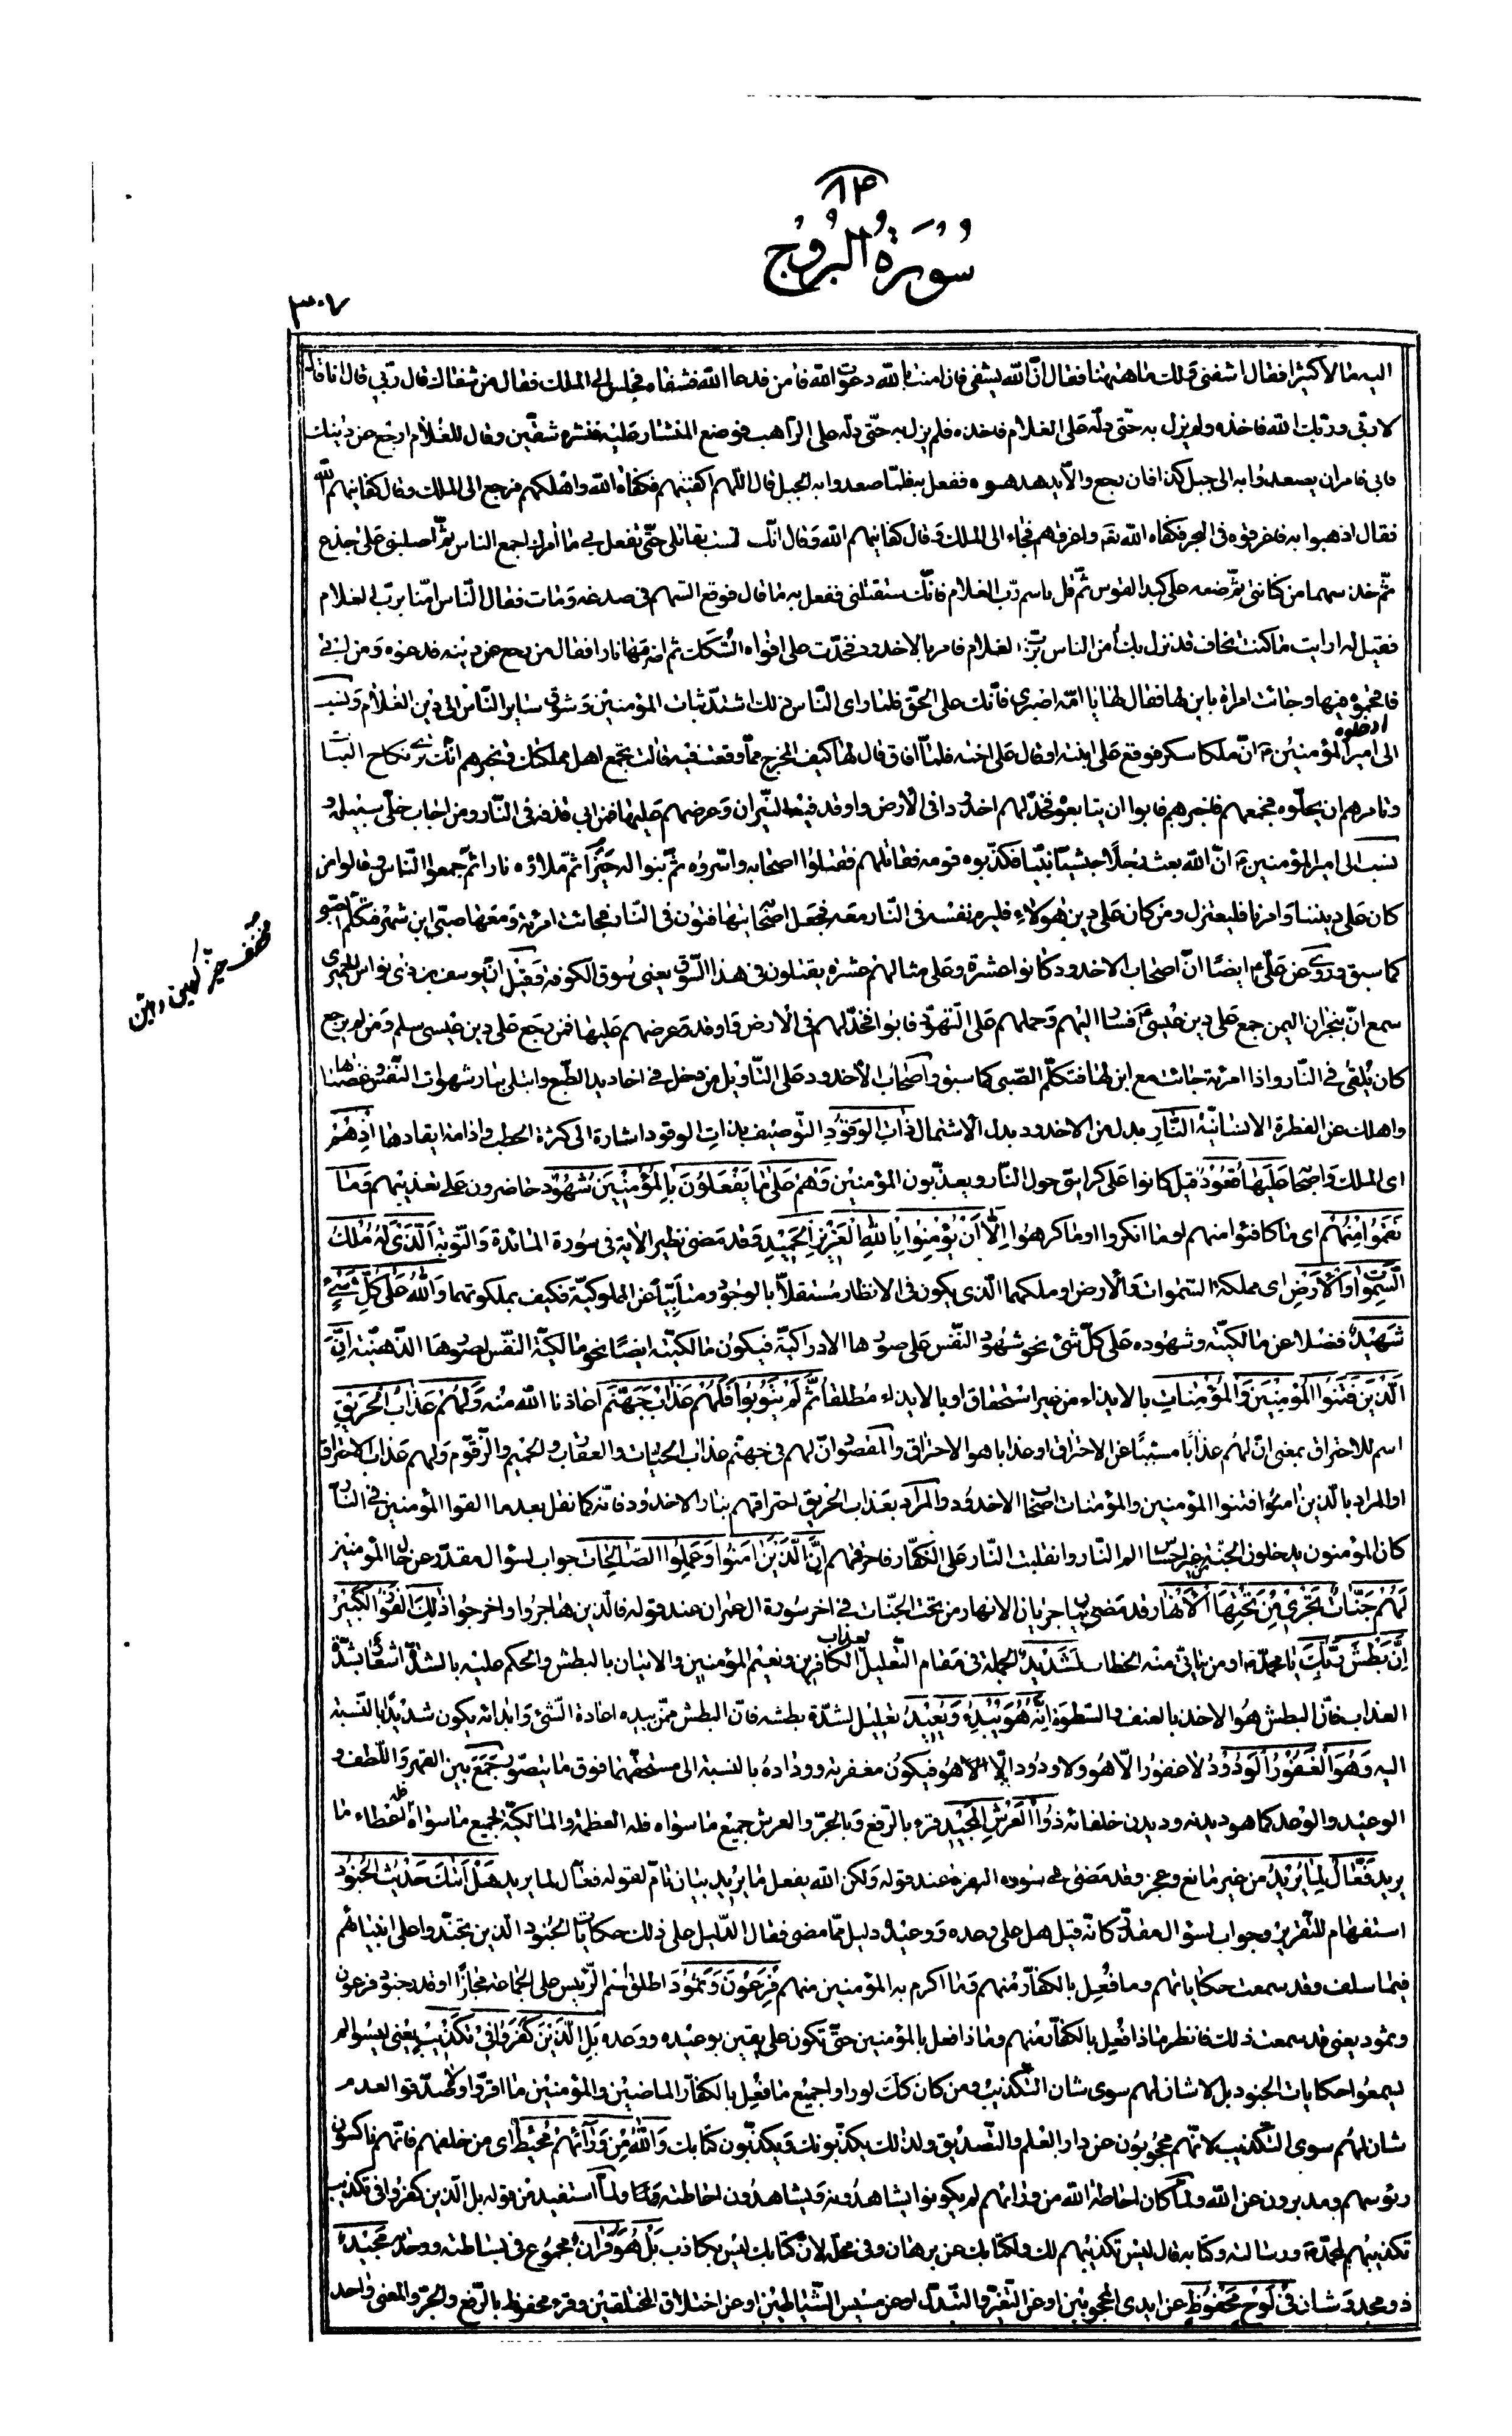 ٨۴
سُورَةُ البُرُوج
٣٠٧
اليه مالا كثيرا فقال اشفنى ولك ما ههنا فقال انّ الله يشفى فان امنت بالله دعوت الله فامن فدعا الله فشفاه فجلس الى الملك فقال من شفاك قال ربّى قال انا قال
لا ربّى وربّك الله فاخذه ولم يزل به حتّى دلّه على الغلام فاخذه فلم يزل به حتّى دلّه على الرّاهب فوضع المنشار عليه فنشره شقّين وقال للغلام ارجع عن دينك
فابى فامر ان يصعدوا به الى جبل كذا فان رجع والّا يدهدهوه ففعل به فلمّا صعدوا به الجبل قال اللّهم اكفنيهم فكفاه الله واهلكهم فرجع الى الملك وقال كفانيهم الله
فقال اذهبوا به فاغرقوه فى البحر فكفاه الله تعم واغرقهم فجاء الى الملك وقال كفانيهم الله وقال انّك لست بقاتلى حتّى تفعل بى ما امرك اجمع الناس ثمّ اصلبنى على جذع
ثمّ خذ سهما من كنانتى ثمّ ضعه على كبد القوس ثمّ قل باسم ربّ الغلام فانّك ستقتلنى ففعل به ما قال فوقع السّهم فى صدغه ومات فقال النّاس امنّا بربّ الغلام
فقيل له ارايت ما كنت تخاف قد نزل بك امن الناس بربّ الغلام فامر بالاخدود فخدّت على افواه السّكك ثم اضرمها نارا فقال من رجع عن دينه فدعوه ومن ابى
فاقحموه فيها وجائت امراة بابن لها فقال لها يا امّه اصبرى فانّك على الحقّ فلمّا راى النّاس ذلك اشتدّ ثبات المؤمنين وشوق ساير النّاس الى دين الغلام ونسب
ادخلوه
الى امير المؤمنين ع انّ ملكا سكر فوقع على ابنته او قال على اخته فلمّا افاق قال لها كيف المخرج ممّا وقعت فيه قالت تجمع اهل مملكتك فتخبرهم انّك ترى نكاح البنات
وتامرهم ان يحلّوه فجمعهم فاخبرهم فابوا ان يتابعوه فخدّ لهم اخدودا فى الارض واوقد فيه النّيران وعرضهم عليها فمن ابى قذفه فى النّار ومن اجاب خلّى سبيله و
نسب الى امير المؤمنين ع انّ الله بعث رجلا حبشيّا نبيّا فكذّبوه قومه فقاتلهم فقتلوا اصحابه واسروه ثمّ بنوا له حيّزا ثمّ ملاؤه نارا ثمّ جمعوا النّاس وقالوا من
كان على ديننا وامرنا فليعتزل ومن كان على دين هؤلاء فليرم نفسه فى النّار معه فجعل اصحابه يتهافتون فى النّار فجائت امرئة ومعها صبىّ ابن شهر فتكلّم الصّبى
كما سبق وروى عن علىّ ع ايضا انّ اصحاب الاخدود كانوا عشرة وعلى مثالهم عشرة يقتلون فى هذا السّوق يعنى سوق الكوفة وقيل انّ يوسف بن ذى نواس الحميرى
مخفّف حيّز كهين وهيّن
سمع انّ بنجران اليمن جمع على دين عيسى ع فسار اليهم وحملهم على التّهوّد فابوا فخدّ لهم فى الارض واوقد وعرضهم عليها فمن رجع على دين عيسى سلم ومن لم يرجع
كان يلقى فى النّار واذا امرئة جائت مع ابن لها فتكلّم الصّبى كما سبق واصحاب الاخدود على التّاويل من دخل فى اخاديد الطّبع وابتلى بنار شهوات النّفس وغضباتها
واهلك عن الفطرة الانسانيّة النّارِ بدل من الاخدود بدل الاشتمال ذاتِ الوَقُودِ التّوصيف بذات الوقود اشارة الى كثرة الحطب وادامة ايقادها اِذ هُم
اى الملك واصحابه عَلَيها قُعُودٌ قيل كانوا على كراسىّ حول النّار ويعذّبون المؤمنين وَهُم عَلى ما يَفعَلُونَ بِالمُؤمِنينَ شُهُودٌ حاضرون على تعذيبهم وَما
نَقَمُوا مِنهُم اى ما كافئوا منهم او ما انكروا او ما كرهوا اِلّا اَن يُؤمِنُوا بِاللهِ العَزيزِ الحَميدِ وقد مضى نظير الاية فى سورة المائدة والتّوبة اَلَّذى لَهُ مُلكُ
السَّمواتِ وَالاَرضِ اى مملكة السّموات والارض او ملكهما الّذى يكون فى الانظار مستقلّا بالوجود ومتابيّا عن المملوكيّة فكيف بملكوتهما وَاللهُ عَلى كُلِّ شَىءٍ
شَهيدٌ فضلا عن مالكيّته وشهوده على كلّ شئ نحو شهود النّفس على صورها الادراكيّة فيكون مالكيّته ايضا نحو مالكيّة النّفس لصورها الذّهنيّة اِنَّ
الَّذينَ فَتَنُوا المُؤمِنينَ وَالمُؤمِناتِ بالايذاء من غير استحقاق او بالايذاء مطلقا ثُمَّ لَم يَتُوبُوا فَلَهُم عَذابُ جَهَنَّمَ اعاذنا الله منه وَلَهُم عَذابُ الحَريقِ
اسم للاحتراق بمعنى انّ لهم عذابا مسبّبا عن الاحتراق او عذابا هو الاحتراق والمقصود انّ لهم فى جهنّم عذاب الحيّات والعقارب والحميم والزّقوم ولهم عذاب الاحتراق
او المراد بالّذين امنوا فتنوا المؤمنين والمؤمنات اصحاب الاخدود والمراد بعذاب الحريق احتراقهم بنار الاخدود فانّه كما نقل بعد ما القوا المؤمنين فى النّار
كان المؤمنون يدخلون الجنّة من غير احساس الم النّار وانقلبت النّار على الكفّار فاحرقهم اِنَّ الَّذينَ امَنُوا وَعَمِلُوا الصّالِحاتِ جواب لسؤال مقدّر عن حال المؤمنين
لَهُم جَنّاتٌ تَجرى مِن تَحتِهَا الاَنهارُ قد مضى بيان جريان الانهار من تحت الجنّات فى اخر سورة ال عمران عند قوله فالّذين هاجروا واخرجوا ذلِكَ الفَوزُ الكَبيرُ
بعذاب
اِنَّ بَطشَ رَبِّكَ يا محمّد ص او من يأتى منه الخطاب لَشَديدٌ الجملة فى مقام التّعليل الكافرين ونعيم المؤمنين والاتيان بالبطش والحكم عليه بالشّدّة اشعار بشدّة
العذاب فانّ البطش هو الاخذ بالعنف والسّطوة اِنَّهُ هُوَ يُبدِئُ وَيُعيدُ تعليل لشدّة بطشه فانّ البطش ممّن بيده اعادة الشّئ وابدائه يكون شديدا بالنّسبة
اليه وَهُوَ الغَفُورُ الوَدُودُ لا غفور الّا هو ولا ودود الّا هو فيكون مغفرته وودادة بالنسبة الى مستحقّهما فوق ما يتصوّر جمع بين القهر واللّطف و
الوعيد والوعد كما هو ديدنه وديدن خلفائه ذُوالعَرشِ المَجيدُ قرء بالرّفع وبالجرّ والعرش جميع ما سواه فله العظمة والمالكيّة لجميع ما سواه فله اعطاء ما
يريد فَعّالٌ لِما يُريدُ من غير مانع وعجز وقد مضى فى سورة البقرة عند قوله ولكن الله يفعل ما يريد بيان تامّ لقوله فعّال لما يريد هَل اَتاكَ حَديثُ الجُنُودِ
استفهام للتّقرير وجواب لسؤال مقدّر كانّه قيل هل على وعده ووعيده دليل ممّا مضى فقال الدّليل على ذلك حكايات الجنود الّذين تجنّدوا على انبيائهم
فيما سلف وقد سمعت حكاياتهم وما فعل بالكفّار منهم وما اكرم به المؤمنين منهم فِرعَونَ وَثَمُودَ اطلق اسم الرّئيس على الجماعة مجازا او قدّر جنود فرعون
وثمود يعنى قد سمعت ذلك فانظر ماذا فعل بالكفّار منهم وماذا فعل بالمؤمنين حتّى تكون على يقين بوعيده ووعده بَلِ الَّذينَ كَفَرُوا فى تَكذيبٍ يعنى ليسوا لم
يسمعوا حكايات الجنود بل لا شان لهم سوى شان التّكذيب ومن كان كك لو راوا جميع ما فعل بالكفّار الماضين والمؤمنين ما اقرّوا ولا صدّقوا لعدم
شان لهم سوى التّكذيب لانّهم محجوبون عن دار العلم والتّصديق ولذلك يكذّبونك ويكذّبون كتابك وَاللهُ مِن وَرائِهِم مُحيطٌ اى من خلفهم فانّهم ناكسوا
رئوسهم ومدبرون عن الله ولمّا كان احاطة الله من ورائهم لم يكونوا يشاهدونه ولا يشاهدون احاطته ولمّا استفيد من قوله بل الّذين كفروا فى تكذيب
تكذيبهم لمحمّد ص ورسالته وكتابه قال ليس تكذيبهم لك ولكتابك عن برهان وفى محلّه لانّ كتابك ليس بكاذب بَل هُوَ قُرانٌ مجموع فى بساطته ووحدته مَجيدٌ
ذو مجد وشان فى لَوحٍ مَحفُوظٍ عن ايدى المحجوبين او عن التّغيّر والتّبدّل او عن مسيس الشّياطين او عن اختلاق المختلقين وقرء محفوظ بالرّفع والجرّ والمعنى واحد